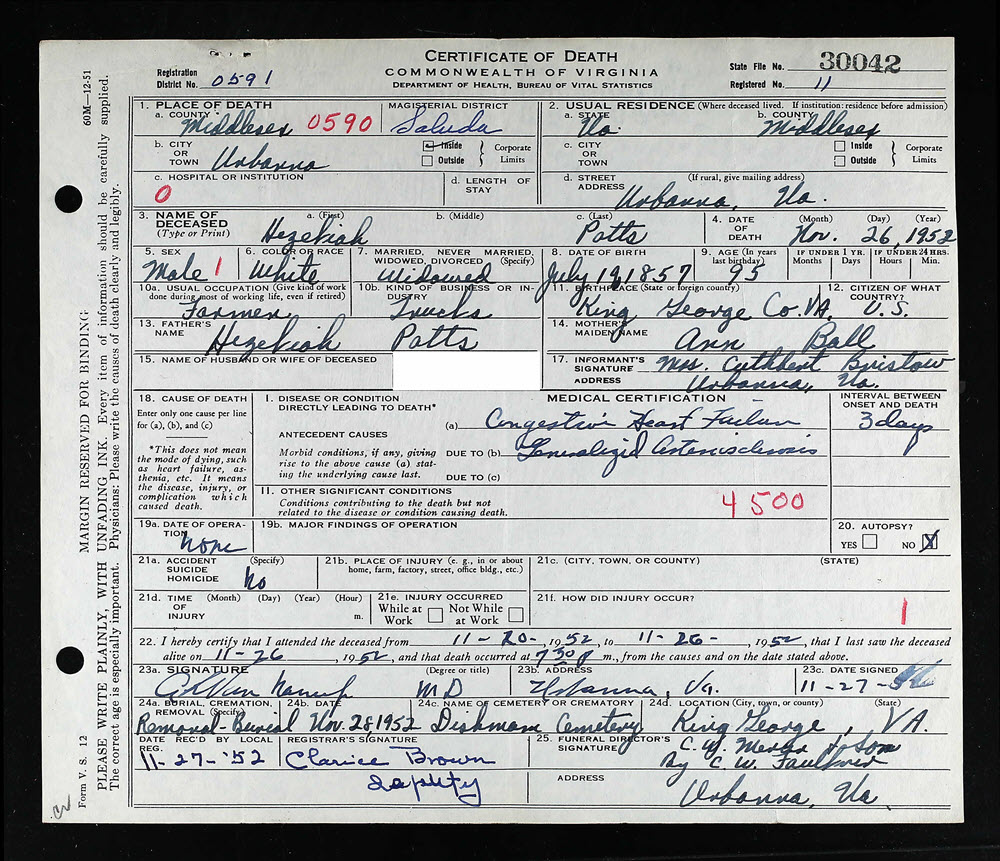 CERTIFICATE OF DEATH
COMMONWEALTH OF VIRGINIA
DEPARTMENT OF HEALTH, BUREAU OF VITAL STATISTICS
Registration District No. 0591
State File No. 30042
Registered No. 11
1. PLACE OF DEATH
a. COUNTY Middlesex 0590
MAGISTERIAL DISTRICT Saluda
b. CITY OR TOWN Urbanna
Inside Outside } Corporate Limits
c. HOSPITAL OR INSTITUTION 0
d. LENGTH OF STAY
2. USUAL RESIDENCE (Where deceased lived. If institution: residence before admission)
a. STATE Va.
b. COUNTY Middlesex
c. CITY OR TOWN
Inside Outside } Corporate Limits
d. STREET ADDRESS (If rural, give mailing address) Urbanna, Va.
3. NAME OF DECEASED (Type or Print)
a. (First) Hezekiah
b. (Middle)
c. (Last) Potts
4. DATE OF DEATH (Month) (Day) (Year) Nov. 26, 1952
5. SEX Male 1
6. COLOR OR RACE White
7. MARRIED, NEVER MARRIED, WIDOWED, DIVORCED (Specify) Widowed
8. DATE OF BIRTH July 19, 1857
9. AGE (In years last birthday) 95
IF UNDER 1 YR. Months Days
IF UNDER 24 HRS. Hours Min.
10a. USUAL OCCUPATION (Give kind of work done during most of working life, even if retired) Farmer
10b. KIND OF BUSINESS OR INDUSTRY Trucks
11. BIRTHPLACE (State or foreign country) King George Co. VA.
12. CITIZEN OF WHAT COUNTRY? U.S.
13. FATHER'S NAME Hezekiah Potts
14. MOTHER'S MAIDEN NAME Ann Ball
15. NAME OF HUSBAND OR WIFE OF DECEASED
17. INFORMANT'S SIGNATURE Mrs. Cuthbert Bristow
ADDRESS Urbanna, Va.
18. CAUSE OF DEATH
Enter only one cause per line for (a), (b), and (c)
*This does not mean the mode of dying, such as heart failure, asthenia, etc. It means the disease, injury, or complication which caused death.
MEDICAL CERTIFICATION
I. DISEASE OR CONDITION DIRECTLY LEADING TO DEATH*
(a) Congestive Heart Failure
INTERVAL BETWEEN ONSET AND DEATH 3 days
ANTECEDENT CAUSES
Morbid conditions, if any, giving rise to the above cause (a) stating the underlying cause last.
DUE TO (b) Generalized Arteriosclerosis
DUE TO (c)
II. OTHER SIGNIFICANT CONDITIONS
Conditions contributing to the death but not related to the disease or condition causing death.
4500
19a. DATE OF OPERATION none
19b. MAJOR FINDINGS OF OPERATION
20. AUTOPSY?
YES NO X
21a. ACCIDENT SUICIDE HOMICIDE (Specify) No
21b. PLACE OF INJURY (e. g., in or about home, farm, factory, street, office bldg., etc.)
21c. (CITY, TOWN, OR COUNTY) (STATE)
21d. TIME OF INJURY (Month) (Day) (Year) (Hour) m.
21e. INJURY OCCURRED
While at Work Not While at Work
21f. HOW DID INJURY OCCUR?
1
22. I hereby certify that I attended the deceased from 11-20-, 1952, to 11-26-, 1952, that I last saw the deceased
alive on 11-26, 1952, and that death occurred at 7 30 P m., from the causes and on the date stated above.
23a. SIGNATURE (Degree or title) MD
23b. ADDRESS Urbanna, Va.
23c. DATE SIGNED 11-27-52
24a. BURIAL, CREMATION, REMOVAL (Specify) Removal-Burial
24b. DATE Nov. 28, 1952
24c. NAME OF CEMETERY OR CREMATORY Dishman Cemetery
24d. LOCATION (City, town, or county) (State) King George, VA.
DATE REC'D BY LOCAL REG. 11-27-'52
REGISTRAR'S SIGNATURE Clarice Brown
deputy
25. FUNERAL DIRECTOR'S SIGNATURE
By C. W. Faulkner
ADDRESS Urbanna, Va.
Form V. S. 12
MARGIN RESERVED FOR BINDING
60M—12-51
PLEASE WRITE PLAINLY, WITH UNFADING INK. Every item of information should be carefully supplied.
The correct age is especially important. Physicians: Please write the causes of death clearly and legibly.